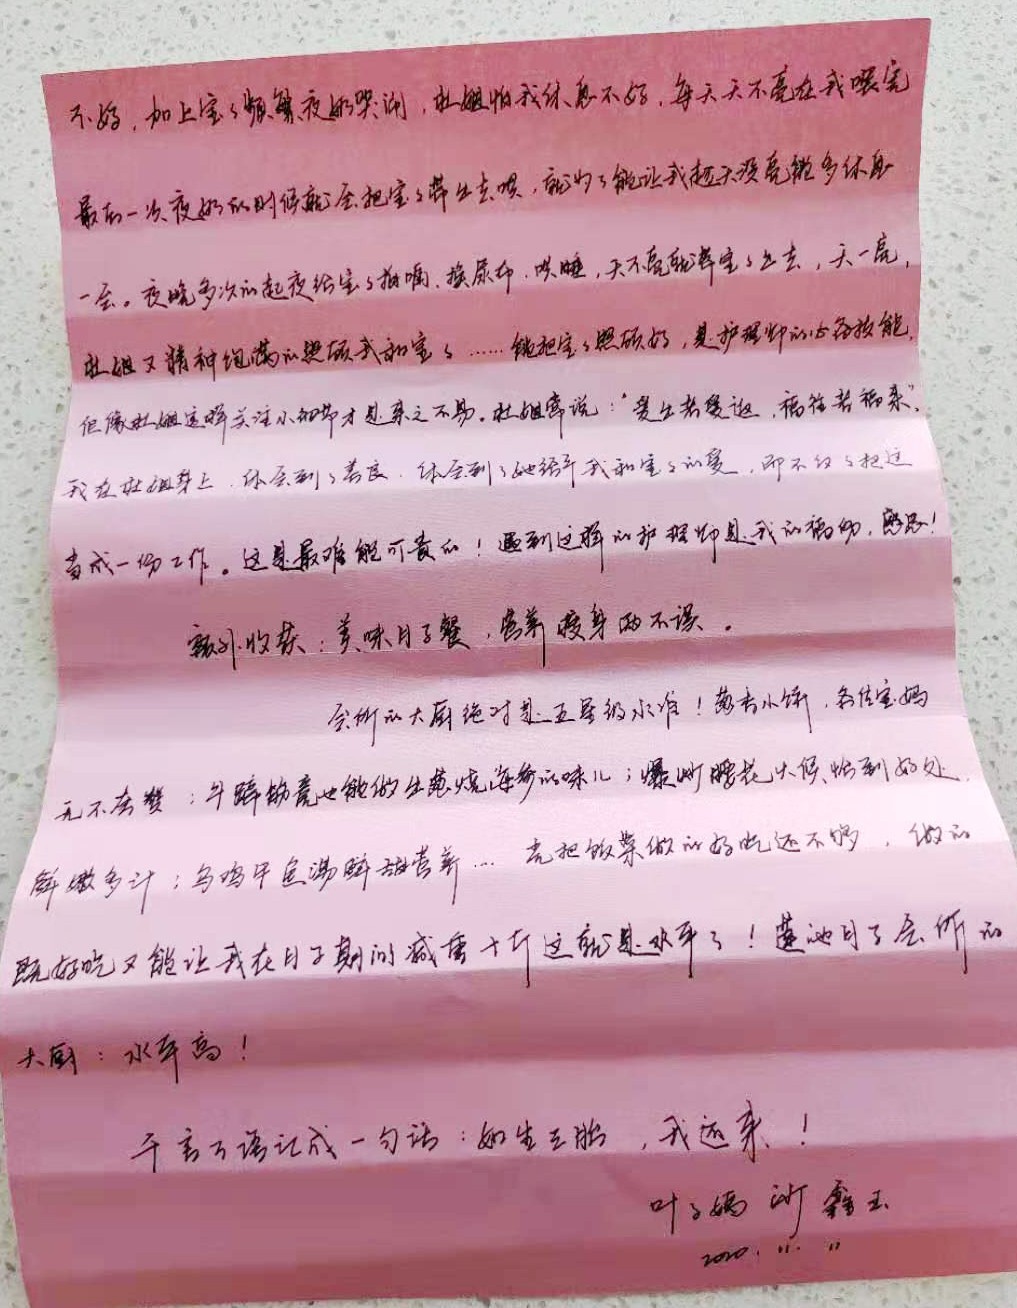 不好，加上宝宝频繁夜奶哭闹，杜姐怕我休息不好，每天天不亮在我喂完
最后一次夜奶的时候就会把宝宝带出去哄，就为了能让我趁天没亮能多休息
一会。夜晚多次的起夜给宝宝拍嗝、换尿布、哄睡，天不亮就带宝宝出去，天一亮，
杜姐又精神饱满的照顾我和宝宝……能把宝宝照顾好，是护理师的必备技能，
但像杜姐这样关注小细节才是来之不易。杜姐常说：“爱出者爱返，福往者福来”，
我在杜姐身上，体会到了善良，体会到了她给予我和宝宝的爱，而不仅仅把这
当成一份工作。这是最难能可贵的！遇到这样的护理师是我的福分，感恩！
额外收获：美味月子餐，营养瘦身两不误。
会所的大厨绝对是五星级水准！葱香小饼，各位宝妈
无不夸赞；牛蹄筋竟也能做出葱烧海参的味儿；爆炒腰花火候恰到好处，
鲜嫩多汁；乌鸡甲鱼汤鲜甜营养… 光把饭菜做的好吃还不够，做的
既好吃又能让我在月子期间减重十斤这就是水平了！莲池月子会所的
大厨：水平高！
千言万语汇成一句话：如生三胎，我还来！
叶子妈 鑫玉
2020.11.11